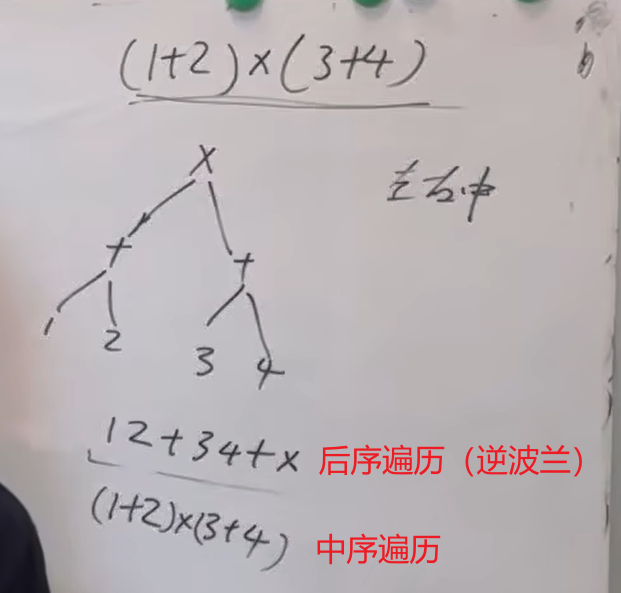 (1+2)×(3+4)
左右中
×
+ +
1 2 3 4
12+34+× 后序遍历（逆波兰）
(1+2)×(3+4) 中序遍历